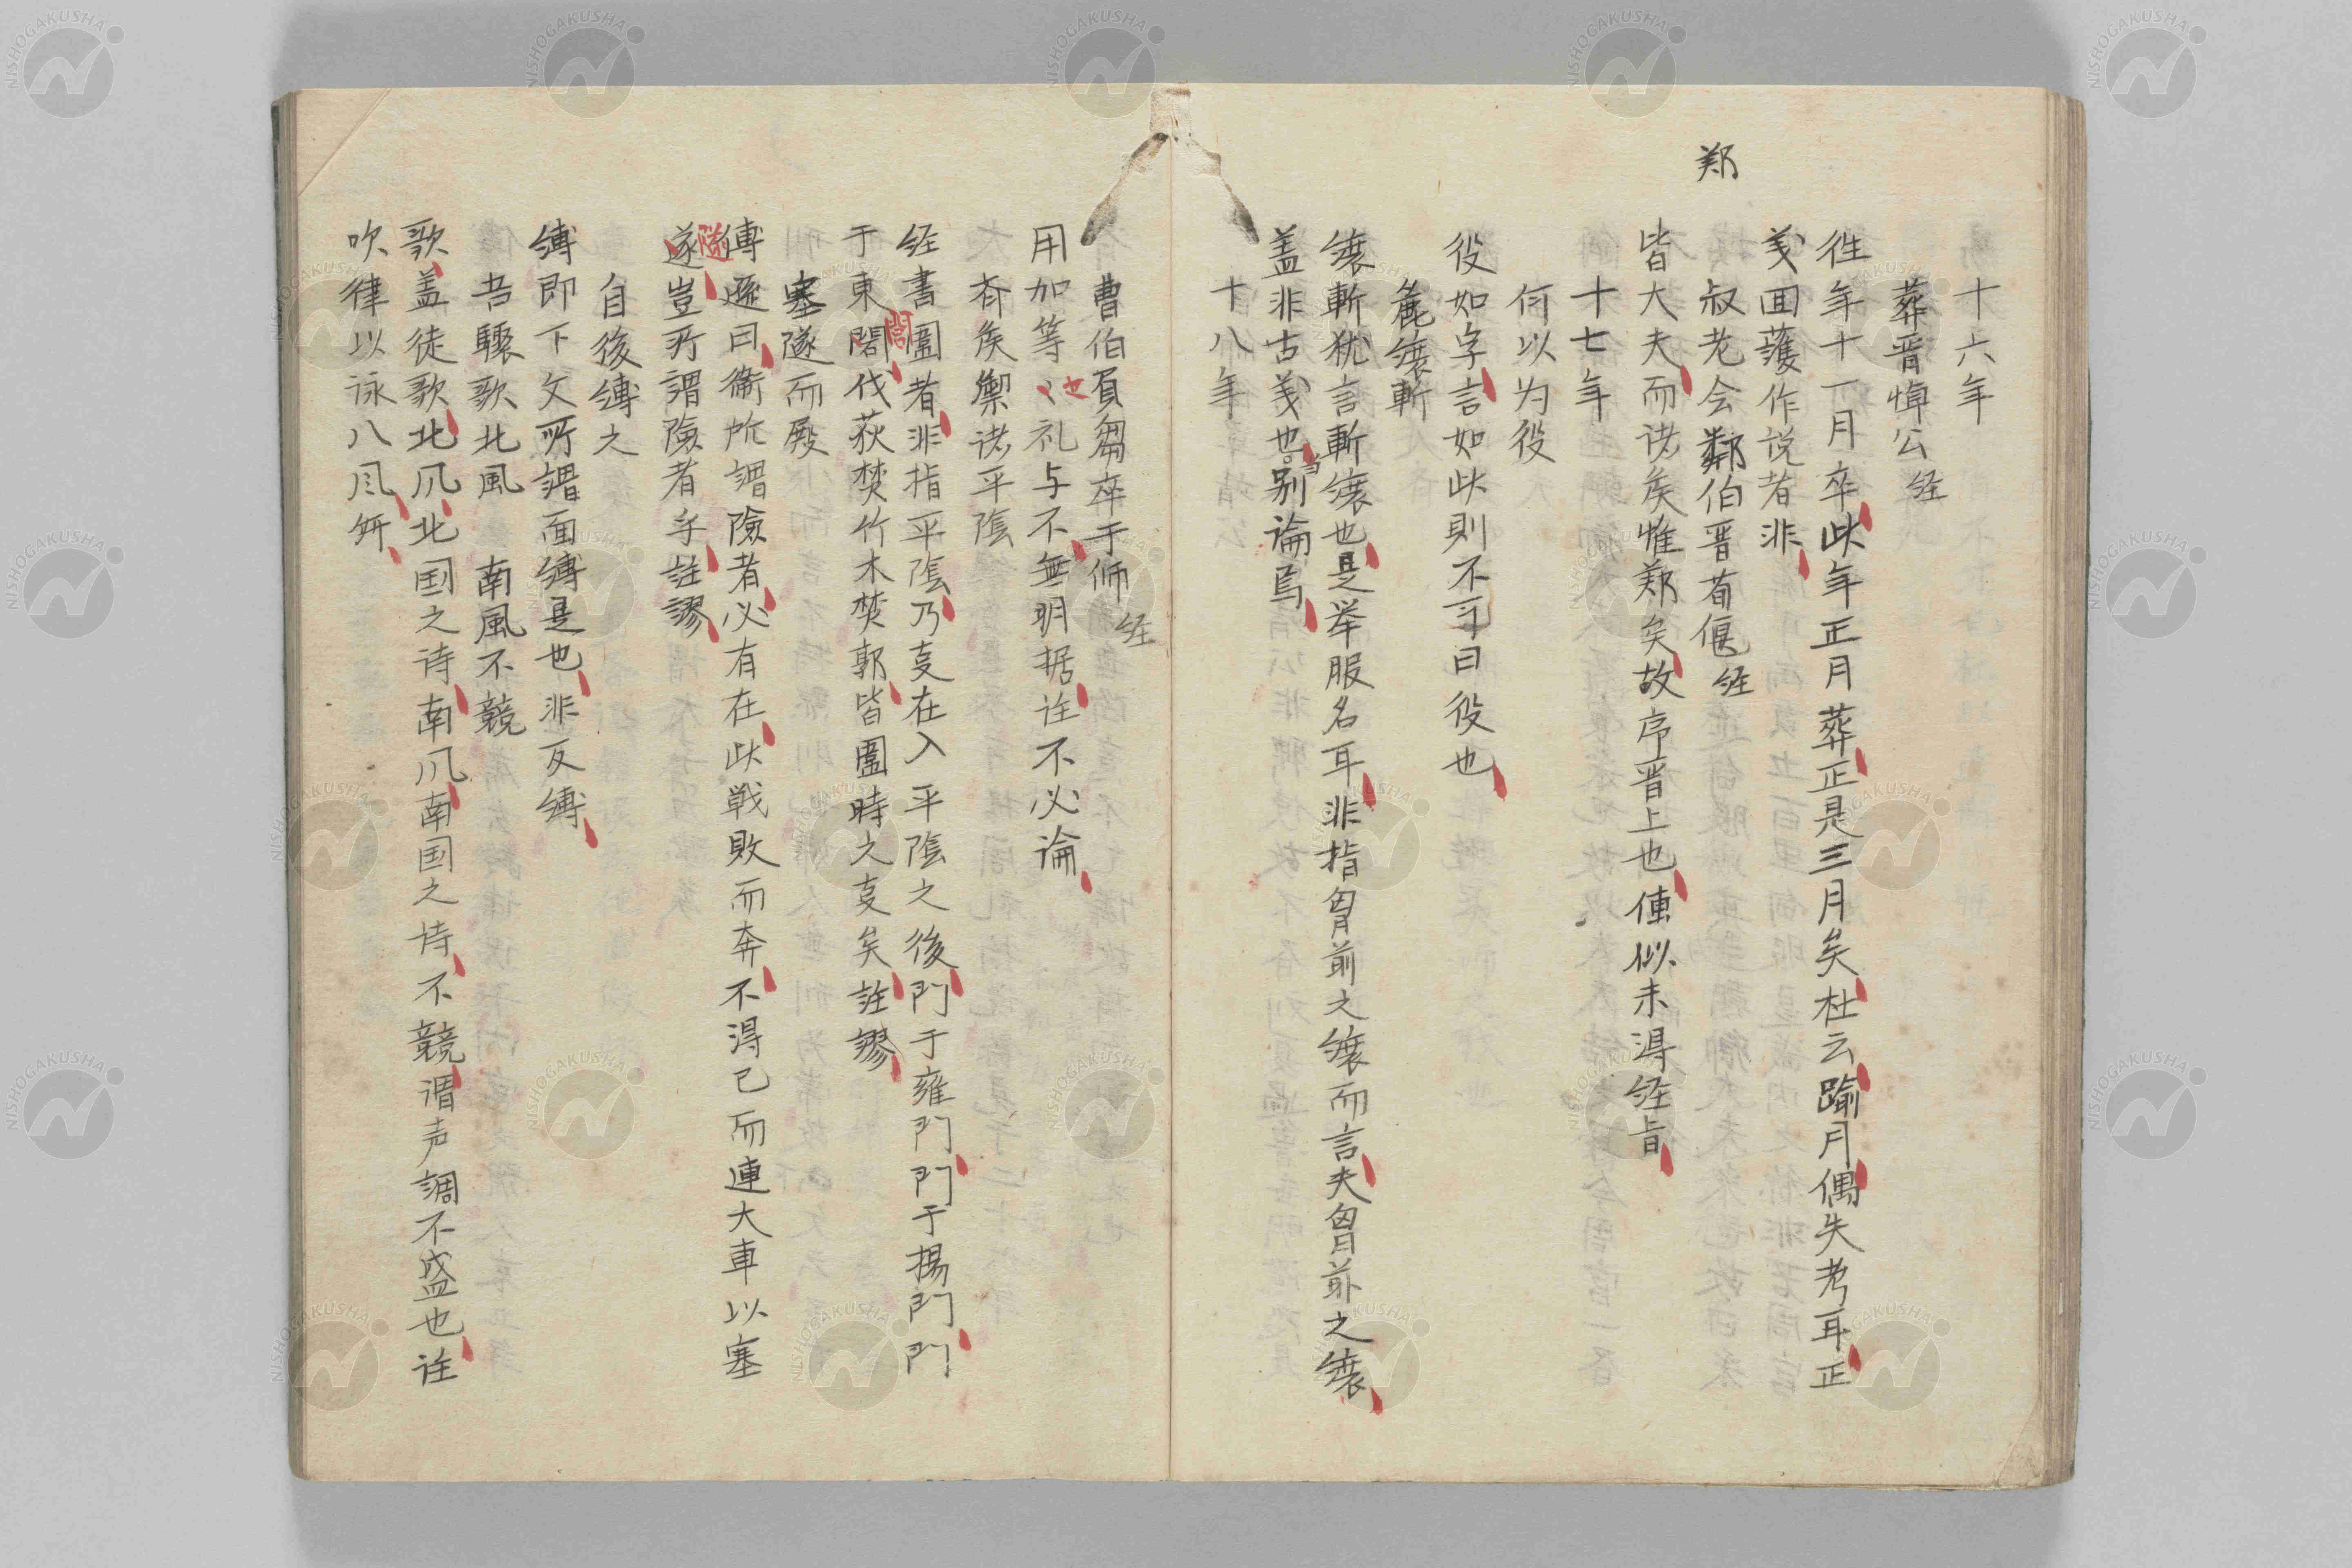 鄭
十六年
葬晋悼公経
往年十一月卒此年正月葬正是三月矣杜云踰月偶失考耳正
義回護作説者非
叔老会鄭伯晋荀偃経
皆大夫而諸侯惟鄭矣故序晋上也傳似未得経旨
十七年
何以为役
役如字言如此則不可曰役也
麁縗斬
縗斬犹言斬縗也是举服名耳非指胷前之縗而言夫胷前之縗
盖非古義也当別論焉
十八年
曹伯負芻卒于師経
用加等〻礼也与不無明据註不必論
斉侯禦諸平陰
経書圍者非指平陰乃夌在入平陰之後門于雍門門于揚門門
于東閭伐荻焚竹木焚郭皆圍時之夌矣註謬
閭
塞隧而殿
傳遜曰衞所謂險者必有在此戦敗而奔不得已而連大車以塞
隧
遂豈所謂險者乎註謬
自後縛之
縛即下文所謂面縛是也非反縛
吾驟歌北風　南風不競
歌盖徒歌北风北国之诗南风南国之诗不競谓声調不盛也註
吹律以詠八风舛